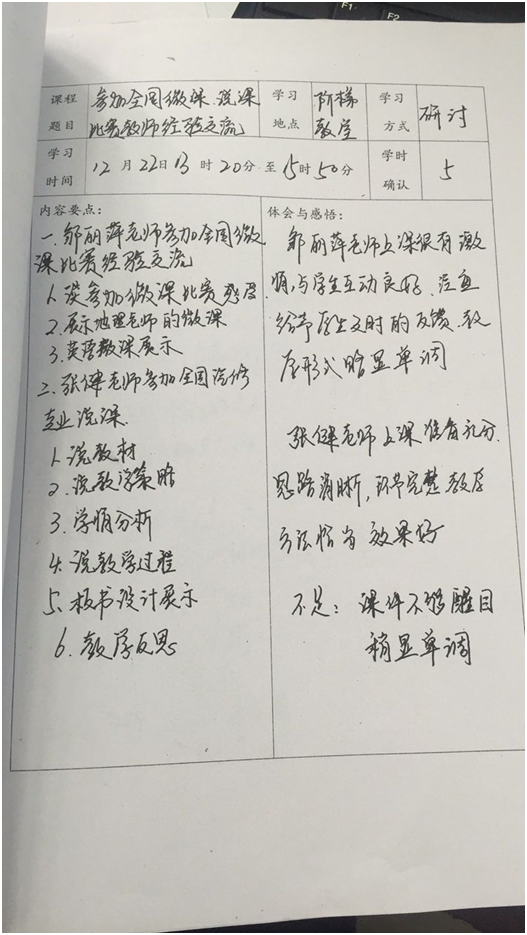 F1
F2
课程题目
参加全国微课、说课
比赛教师经验交流
学习地点
阶梯
教室
学习方式
研讨
学习时间
12月22日13时20分至15时50分
学时确认
5
内容要点：
一、邹丽萍老师参加全国微
课比赛经验交流
1、谈参加微课比赛感受
2、展示地理老师的微课
3、英语微课展示
二、张健老师参加全国汽修
专业说课
1、说教材
2、说教学策略
3、学情分析
4、说教学过程
5、板书设计展示
6、教学反思
体会与感悟：
邹丽萍老师上课很有激
情，与学生互动良好、注重
给予学生及时的反馈、教
学形式略显单调
张健老师上课准备充分
思路清晰，环节完整教学
方法恰当 效果好
不足：课件不够醒目
稍显单调